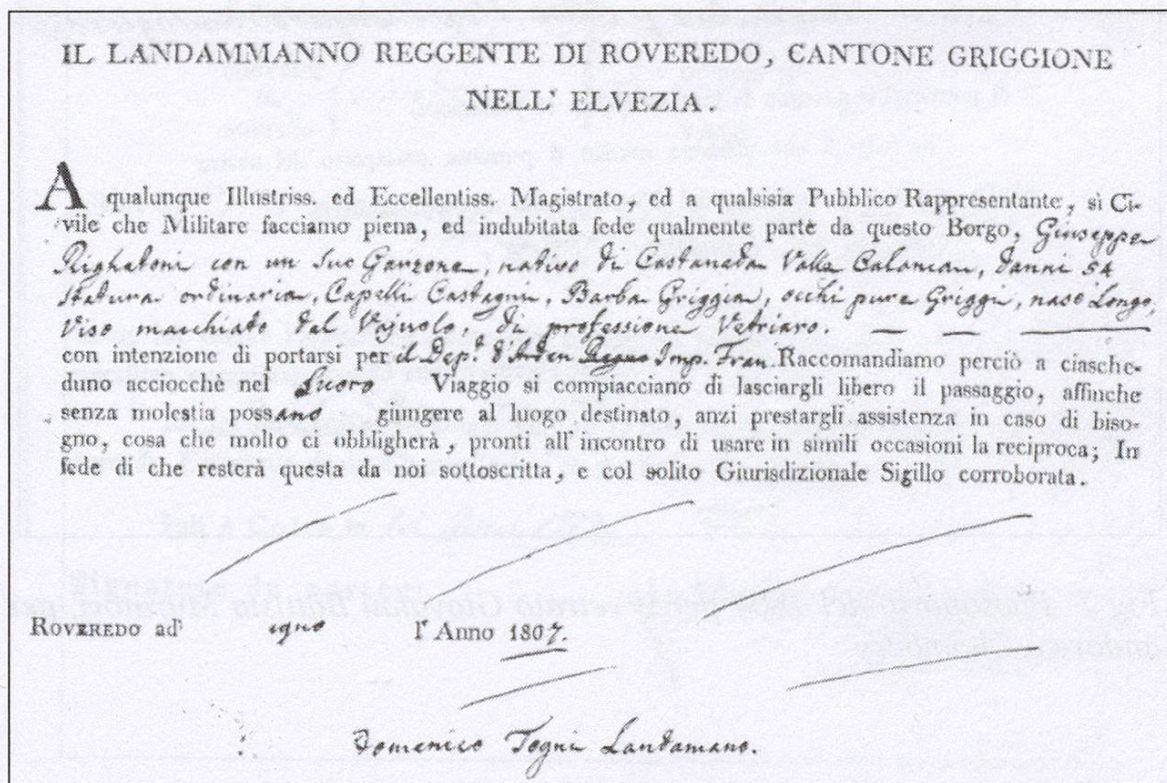 IL LANDAMMANNO REGGENTE DI ROVEREDO, CANTONE GRIGGIONE
NELL' ELVEZIA.
A qualunque Illustriss. ed Eccellentiss. Magistrato, ed a qualsisia Pubblico Rappresentante, sì Ci-
vile che Militare facciamo piena, ed indubitata fede qualmente parte da questo Borgo, Giuseppe
Righetoni con un suo Garzone, nativo di Castaneda Valle Calanca, d'anni 54
statura ordinaria, Capelli Castagni, Barba Griggia, occhi pure Griggi, naso Longo,
Viso macchiato dal Vajuolo, di professione Vetriaro.
con intenzione di portarsi per il Dep.t d'Arden Regno Imp. Fran. Raccomandiamo perciò a ciasche-
duno acciocchè nel Suoro Viaggio si compiacciano di lasciargli libero il passaggio, affinche
senza molestia possano giungere al luogo destinato, anzi prestargli assistenza in caso di biso-
gno, cosa che molto ci obbligherà, pronti all' incontro di usare in simili occasioni la reciproca; In
fede di che resterà questa da noi sottoscritta, e col solito Giurisdizionale Sigillo corroborata.
ROVEREDO ad' l' Anno 1807.
Domenico Togni Landamano.